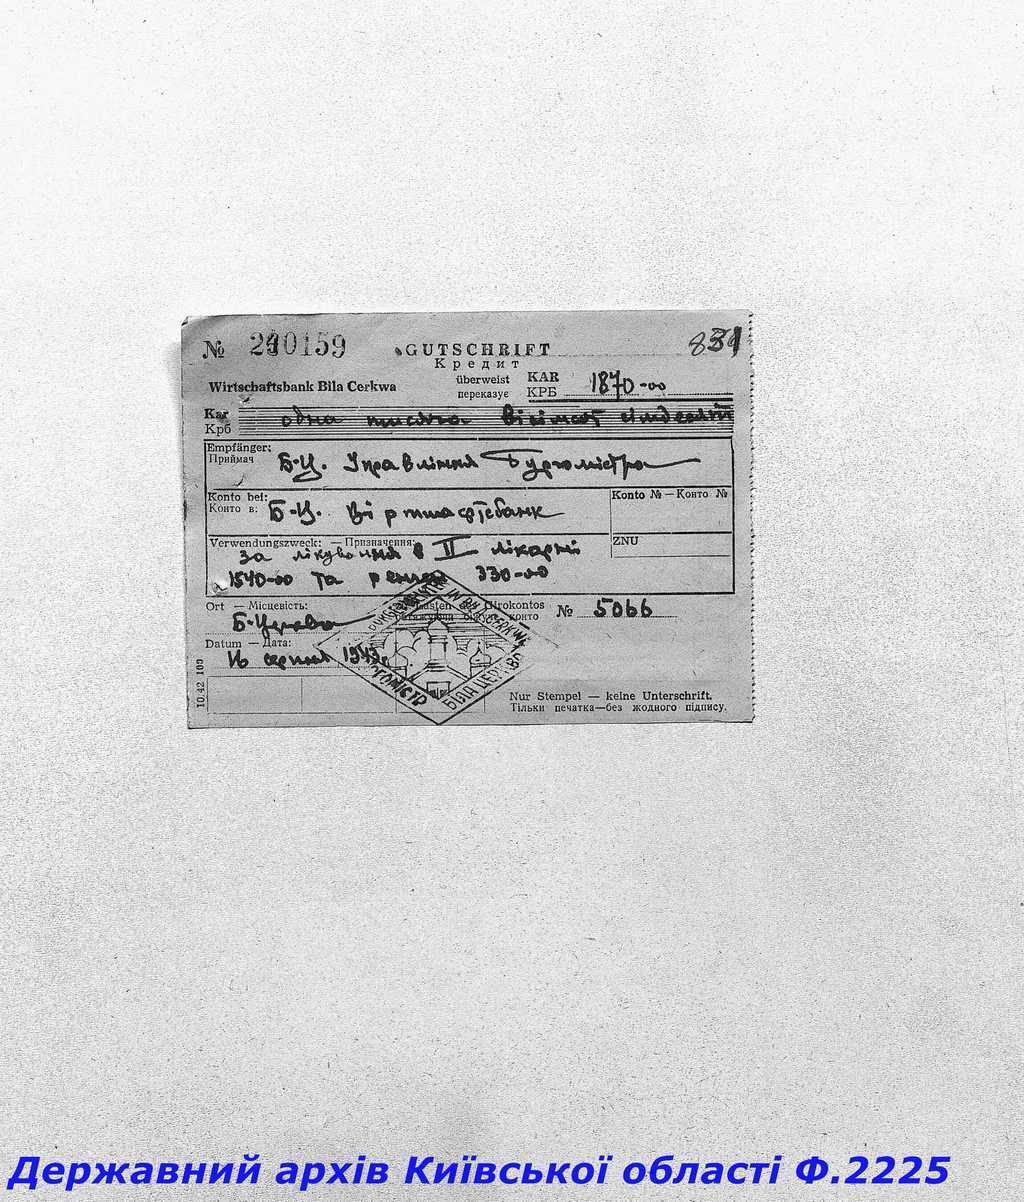 № 240159 GUTSCHRIFT 831
Кредит
Wirtschaftsbank Bila Cerkwa überweist KAR 1870-00
переказує КРБ
Kar одна тисяча вісімсот сімдесят
Крб
Empfänger:
Приймач Б-Ц. Управління Бургомістра
Konto bei: Konto № — Конто №
Конто в: Б-Ц. Віртшафтсбанк
Verwendungszweck: — Призначення: ZNU
за лікування в II лікарні
1540-00 та 330-00
Ort — Місцевість: Lasten Girokontos № 5066
Б-Церква обтяжуючи конто
Datum — Дата:
16 серпня 1943 р
БІЛА ЦЕРКВА
10.42 100
Nur Stempel — keine Unterschrift.
Тільки печатка—без жодного підпису.
Державний архів Київської області Ф.2225